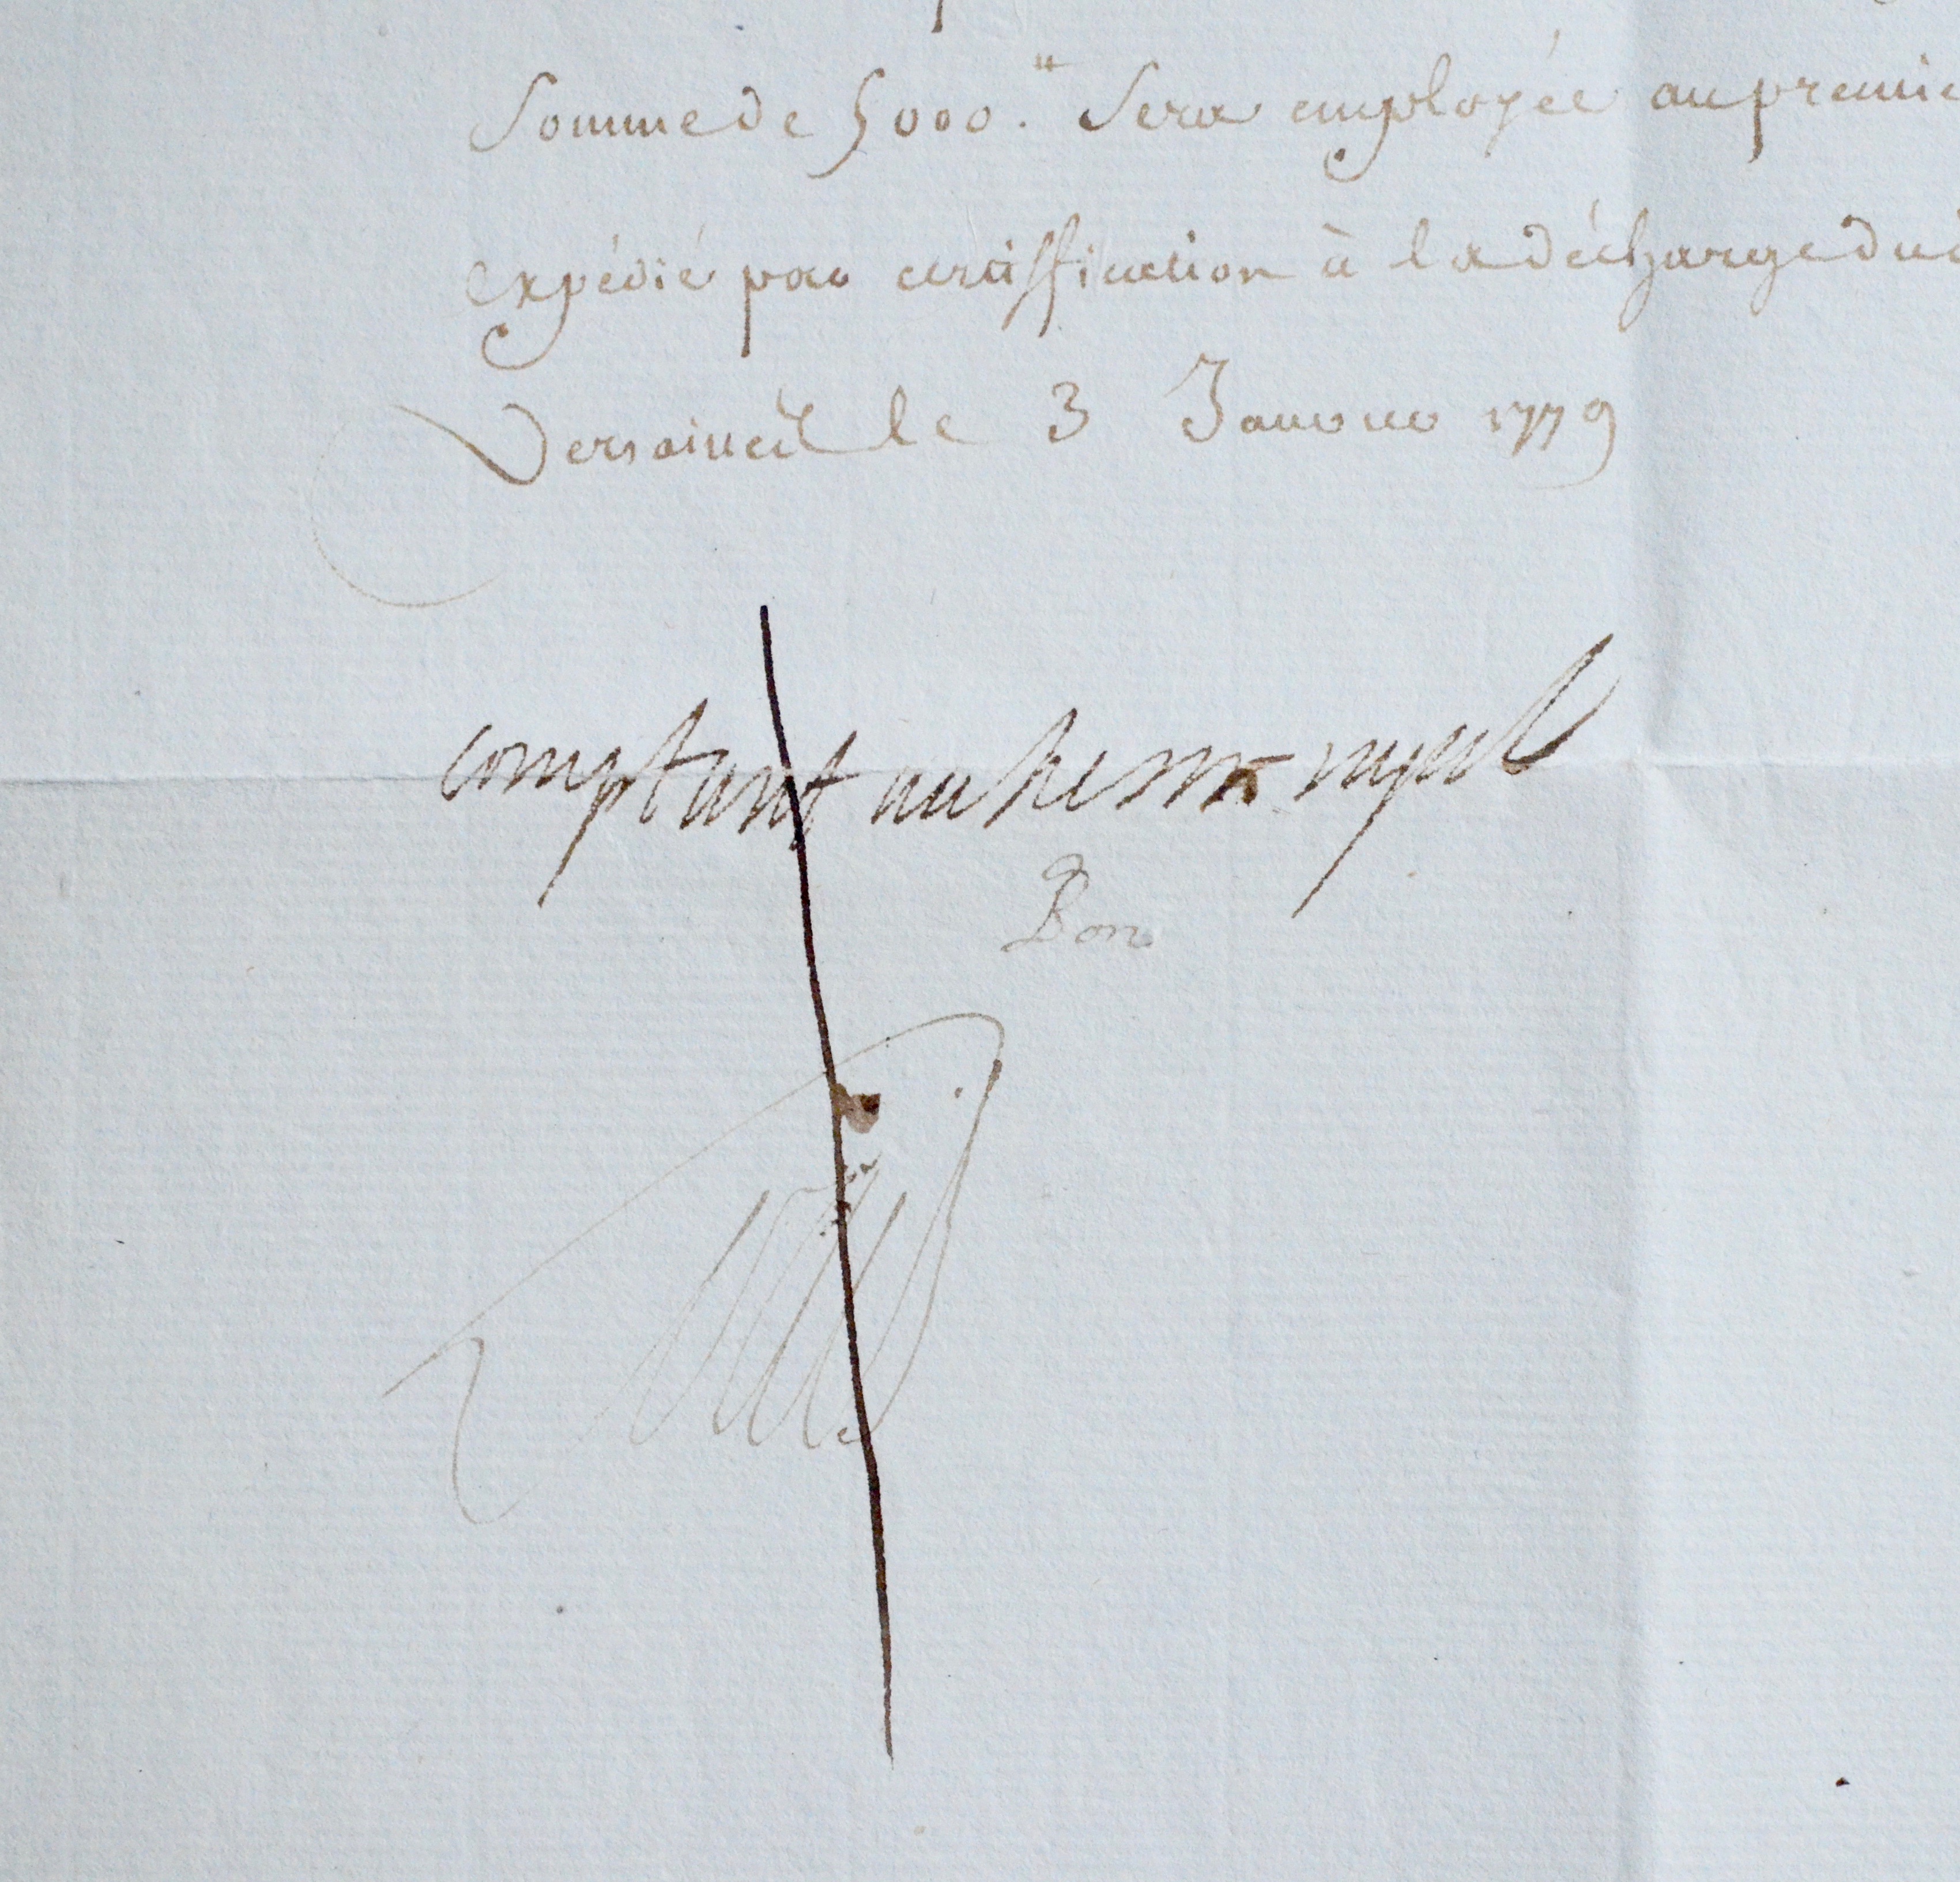 Somme de 5000.ᵗᵗ Sera employée au premie
expédié par certiffication à la décharge du
Versailles le 3 Janvier 1779
comptant au tresor royal
Bon